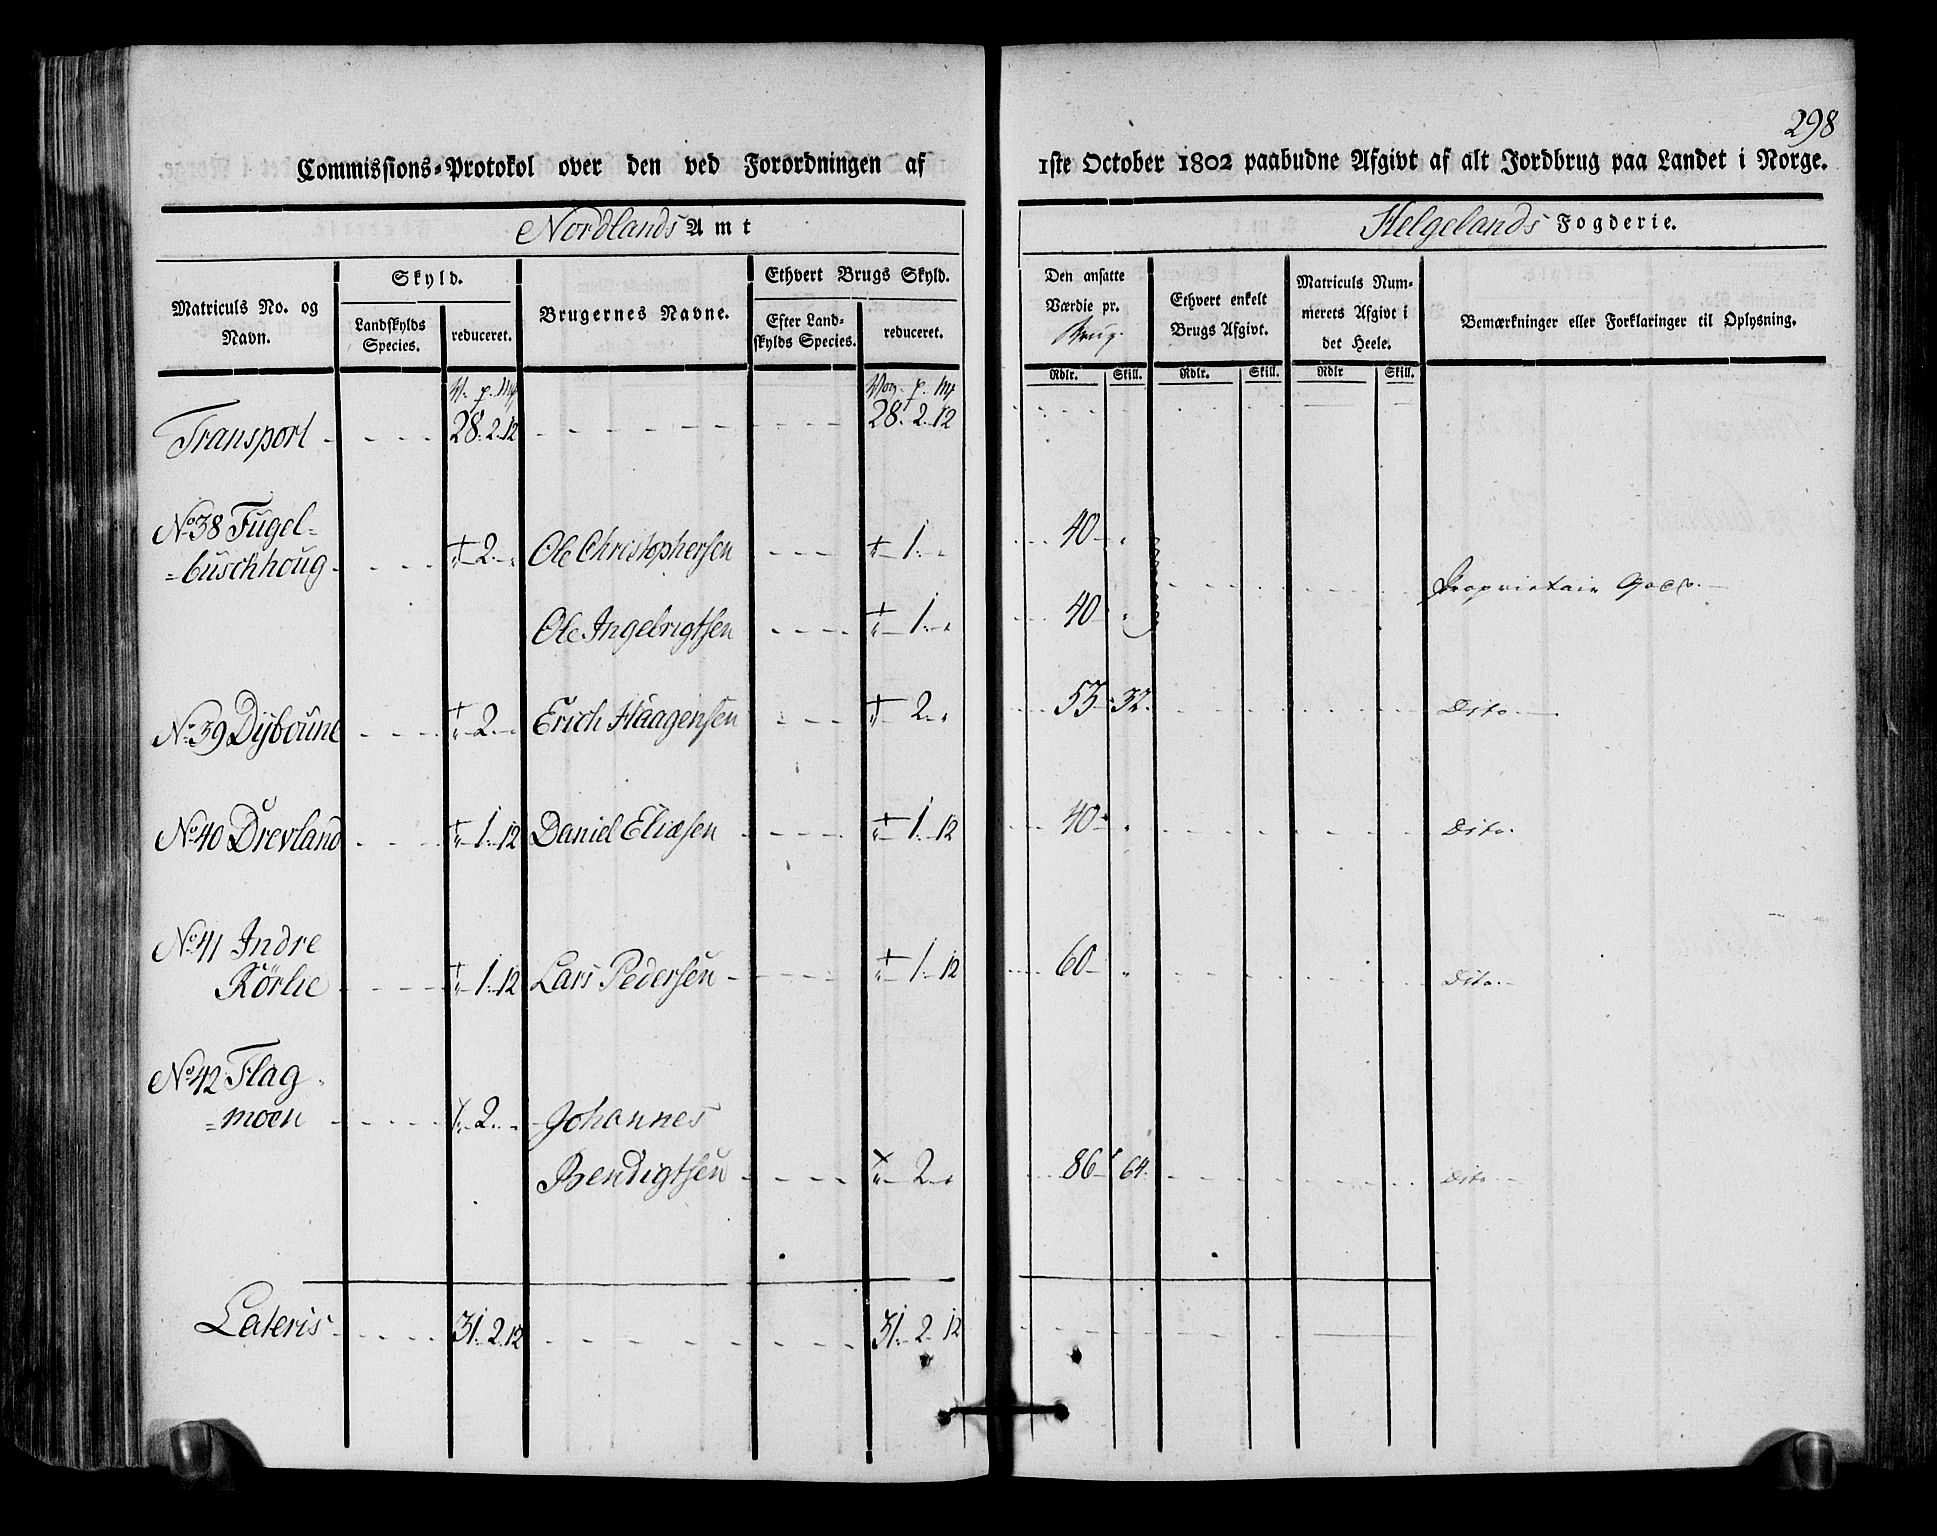 298
Commissions-Protokol over den ved Forordningen af 1ste October 1802 paabudne Afgivt af alt Jordbrug paa Landet i Norge.
Nordlands Amt Helgelands Fogderie.
Matriculs No. og Navn.
Skyld.
Landskylds Species.
reduceret.
Brugernes Navne.
Ethvert Brugs Skyld.
Efter Land-
skylds Species.
reduceret.
Den ansatte
Værdie pr.
Brug.
Rdlr. Skill.
Ethvert enkelt
Brugs Afgivt.
Rdlr. Skill.
Matriculs Num-
merets Afgivt i
det Heele.
Rdlr Skill.
Bemærkninger eller Forklaringer til Oplysning.
V. p. Mk Vog. p. Mk
Transport 28. 2. 12 28. 2. 12
No 38 Fugel=
=buschhoug 2 Ole Christophersen 1 40
Proprietair Gods.
Ole Ingebrigtsen 1 40
No 39 Dÿboune 2 Erich Haagensen 2 53 32. Dito
No 40 Drevland 1. 12 Daniel Eliæsen 1. 12 40 Dito.
No 41 Indre
Rörlie 1. 12 Lars Pedersen 1. 12 60 Dito.
No 42 Flag=
=moen 2 Johannes
Bendigtsen 2 86 64. Dito
Lateris 31. 2. 12 31. 2. 12